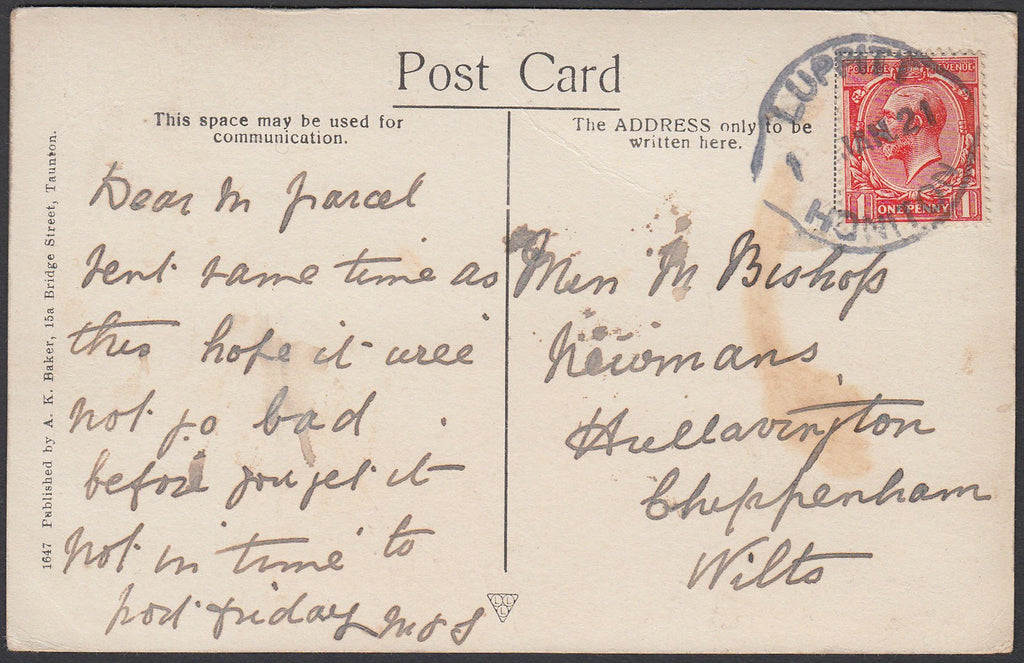 Post Card
This space may be used for
communication.
The ADDRESS only to be
written here.
1647 Published by A. K. Baker, 15a Bridge Street, Taunton.
LUPPITT
JAN 21
HONITON
POSTAGE REVENUE
1 ONE PENNY 1
Dear M parcel
sent same time as
this hope it will
not go bad
before you get it
not in time to
post friday
Miss M Bishop
Newmans
Hullavington
Chippenham
Wilts
L L
L